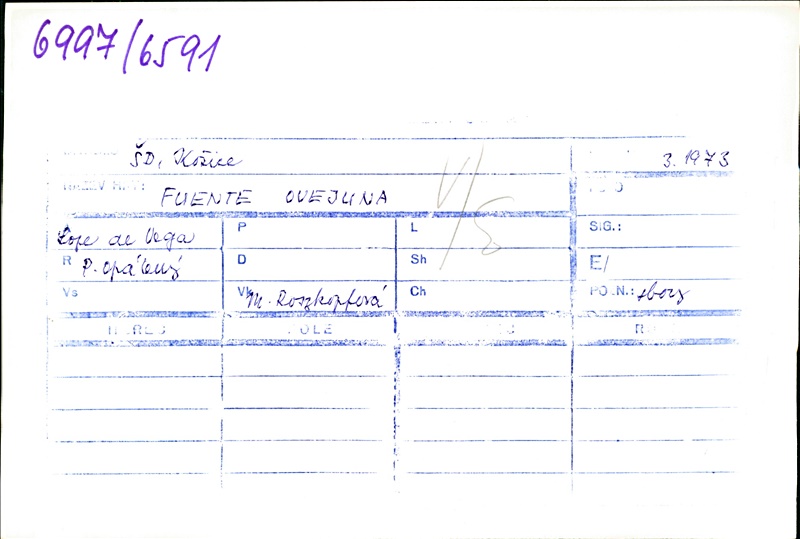 6997/6591
ŠD, Košice 3.1973
NÁZEV HRY: FUENTE OVEJUNA
Lope de Vega P L SIG.:
R P. Opálený D Sh E/
Vs Vk M. Roszkopfová Ch POZN.: sbory
HEREC ROLE